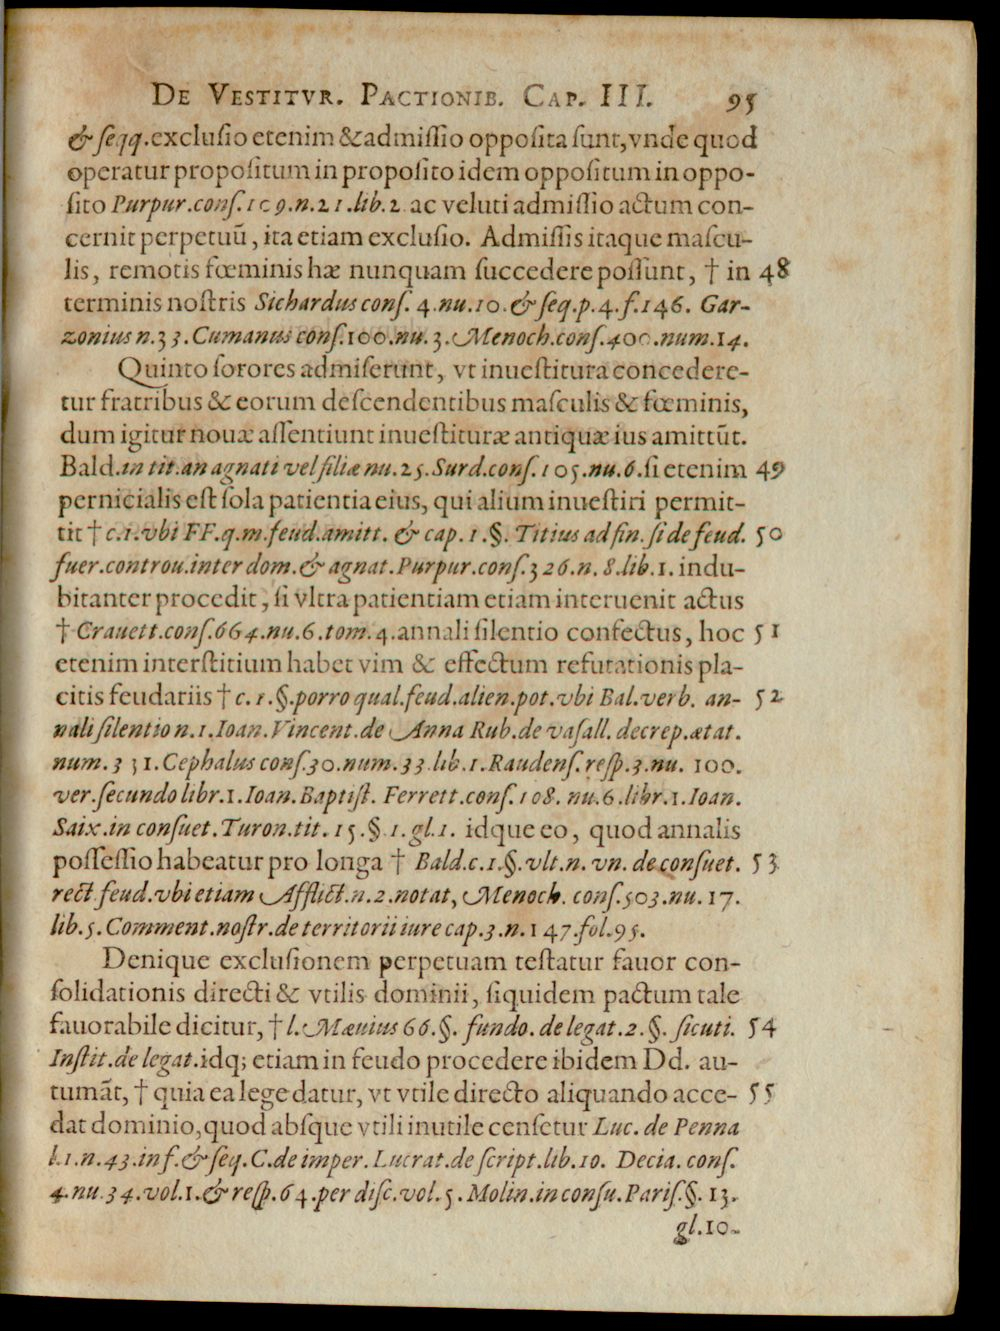 De Vestitvr. Pactionib. Cap. III. 95
& ſeqq. excluſio etenim & admiſſio oppoſita ſunt, vnde quod
operatur propoſitum in propoſito idem oppoſitum in oppo-
ſito Purpur. conſ. 109. n. 21. lib. 2 ac veluti admiſſio actum con-
cernit perpetuũ, ita etiam excluſio. Admiſſis itaque maſcu-
lis, remotis fœminis hæ nunquam ſuccedere poſſunt, † in 48
terminis noſtris Sichardus conſ. 4. nu. 10. & ſeq. p. 4. f. 146. Gar-
zonius n. 33. Cumanus conſ. 100. nu. 3. Menoch. conſ. 400. num. 14.
Quinto ſorores admiſerunt, vt inueſtitura concedere-
tur fratribus & eorum deſcendentibus maſculis & fœminis,
dum igitur nouæ aſſentiunt inueſtituræ antiquæ ius amittũt.
Bald. in tit. an agnati vel filiæ nu. 25. Surd. conſ. 105. nu. 6. ſi etenim 49
pernicialis eſt ſola patientia eius, qui alium inueſtiri permit-
tit † c. 1. vbi FF. q. m. feud. amitt. & cap. 1. §. Titius ad fin. ſi de feud. 50
fuer. controu. inter dom. & agnat. Purpur. conſ. 326. n. 8. lib. 1. indu-
bitanter procedit, ſi vltra patientiam etiam interuenit actus
† Crauett. conſ. 664. nu. 6. tom. 4. annali ſilentio confectus, hoc 51
etenim interſtitium habet vim & effectum refutationis pla-
citis feudariis † c. 1. §. porro qual. feud. alien. pot. vbi Bal. verb. an- 52
nali ſilentio n. 1. Ioan. Vincent. de Anna Rub. de vaſall. decrep. ætat.
num. 331. Cephalus conſ. 30. num. 33. lib. 1. Raudenſ. reſp. 3. nu. 100.
ver. ſecundo libr. 1. Ioan. Baptiſt. Ferrett. conſ. 108. nu. 6. libr. 1. Ioan.
Saix. in conſuet. Turon. tit. 15. § 1. gl. 1. idque eo, quod annalis
poſſeſſio habeatur pro longa † Bald. c. 1. §. vlt. n. vn. de conſuet. 53
rect feud. vbi etiam Afflict. n. 2. notat, Menoch. conſ. 503. nu. 17.
lib. 5. Comment. noſtr. de territorii iure cap. 3. n. 147. fol. 95.
Denique excluſionem perpetuam teſtatur fauor con-
ſolidationis directi & vtilis dominii, ſiquidem pactum tale
fauorabile dicitur, † l. Mæuius 66. §. fundo. de legat. 2. §. ſicuti. 54
Inſtit. de legat. idq; etiam in feudo procedere ibidem Dd. au-
tumãt, † quia ea lege datur, vt vtile directo aliquando acce- 55
dat dominio, quod abſque vtili inutile cenſetur Luc. de Penna
l. 1. n. 43. in f. & ſeq. C. de imper. Lucrat. de ſcript. lib. 10. Decia. conſ.
4. nu. 34. vol. 1. & reſp. 64. per diſc. vol. 5. Molin. in conſu. Pariſ. §. 13.
gl. 10.